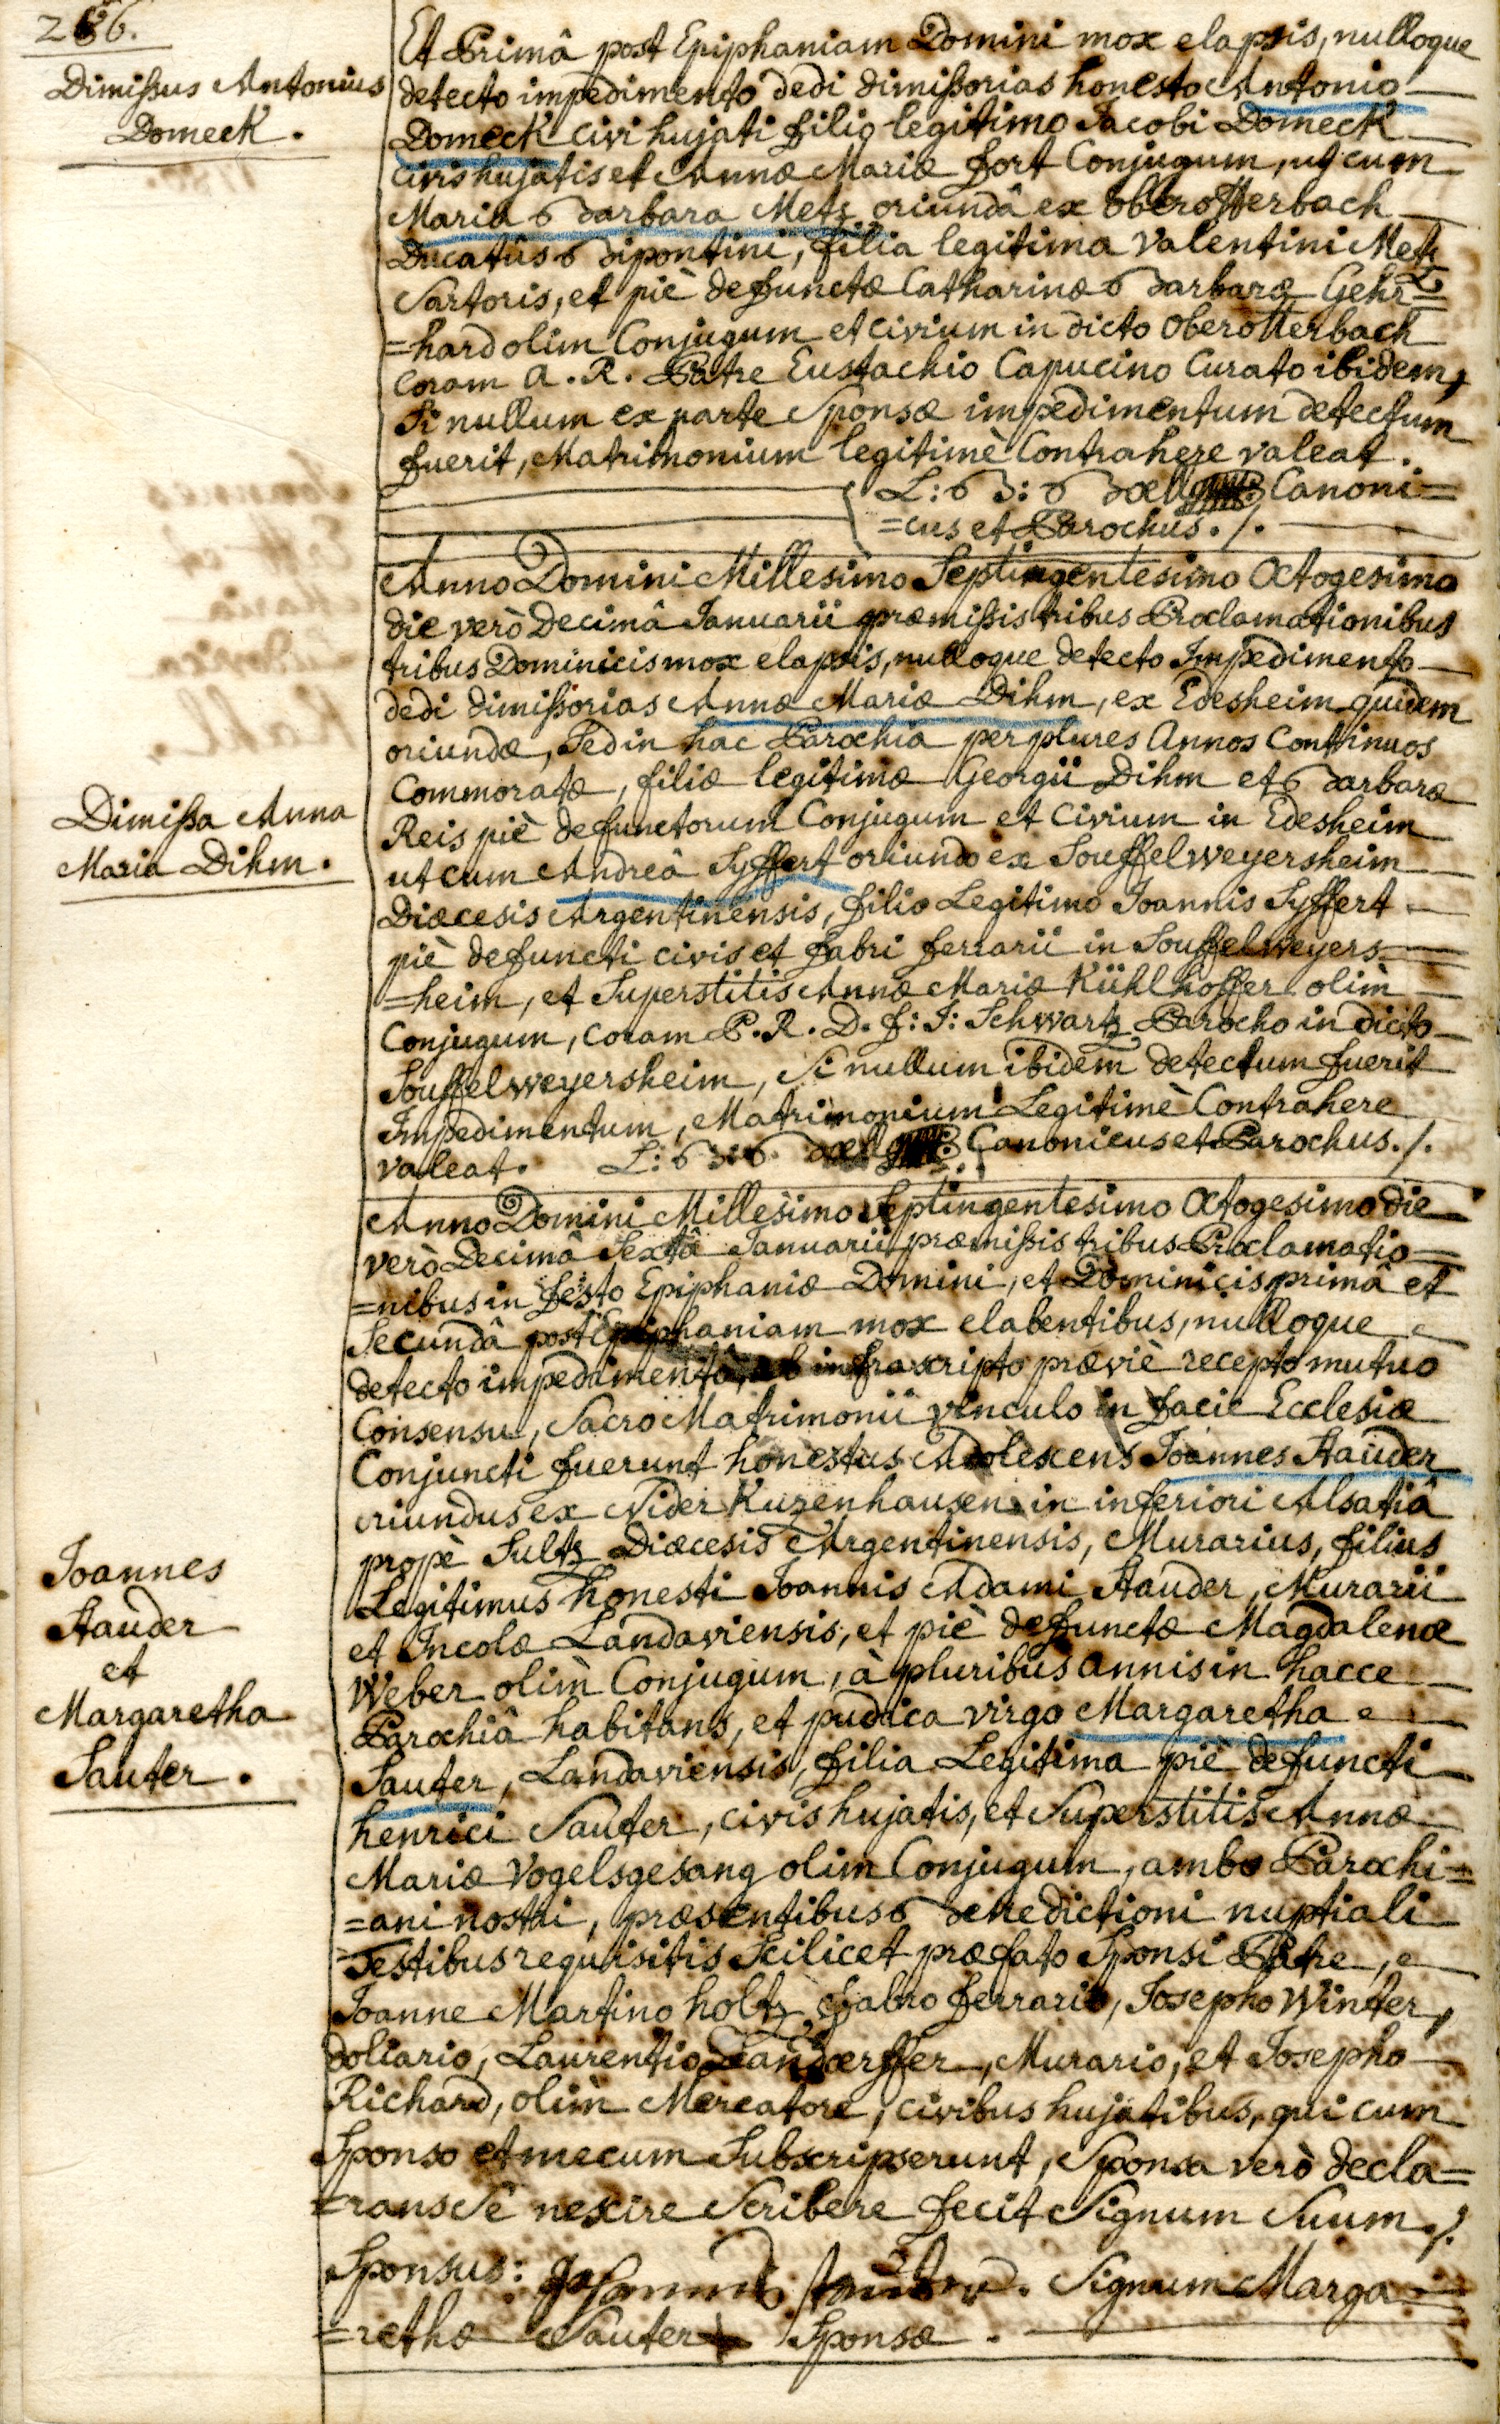 266.
Dimissus Antonius
Domeck.
Et Primâ post Epiphaniam Domini mox elapsis, nulloque
detecto impedimento dedi dimissorias honesto Antonio
Domeck civi hujati filio legitimo Jacobi Domeck
civis hujatis et Annæ Mariæ fort Conjugum, ut cum
Maria Barbara Metz oriundâ ex oberotterbach
Ducatûs Bipontini, filia legitima Valentini Metz
Sartoris, et piè defunctæ Catharinæ Barbaræ Gehr=
=hard olim Conjugum et civium in dicto Oberotterbach
coram A. R. Patre Eustachio Capucino Curato ibidem,
Si nullum ex parte Sponsæ impedimentum detectum
fuerit, Matrimonium legitimè Contrahere valeat.
L: B: Bœll Canoni=
=cus et Parochus./.
Anno Domini Millesimo Septingentesimo Octogesimo
die verò Decimâ Januarii præmissis tribus Proclamationibus
tribus Dominicis mox elapsis, nulloque detecto Impedimento
dedi dimissorias Annæ Mariæ Dihm, ex Edesheim quidem
oriundæ, Sed in hac Parochia per plures Annos Continuos
Commoratæ, filiæ legitimæ Georgii Dihm et Barbaræ
Dimissa Anna
Maria Dihm.
Reis piè defunctorum Conjugum et Civium in Edesheim
ut cum Andreâ Syffert oriundo ex Souffelweyersheim
Diœcesis Argentinensis, filio Legitimo Joannis Syffert
piè defuncti civis et fabri ferrarii in Souffelweyers=
=heim, et Superstitis Annæ Mariæ Kühlhoffer olim
Conjugum, coram P. R. D. f: J: Schwartz Parocho in dicto
Souffelweyersheim, Si nullum ibidem detectum fuerit
Impedimentum, Matrimonium Legitimè Contrahere
valeat. L: B: Bœll Canonicus et Parochus./.
Anno Domini Millesimo Septingentesimo Octogesimo die
verò Decimâ Sextâ Januarii præmissis tribus Proclamatio=
=nibus in festo Epiphaniæ Domini, et Dominicis primâ et
Secundâ post Epiphaniam mox elabentibus, nulloque
detecto impedimento, ab infrascripto præviè recepto mutuo
Consensu, Sacro Matrimonii vinculo in facie Ecclesiæ
Conjuncti fuerunt honestus Adolescens Joannes Stauder
oriundus ex Nider Kuzenhausen in inferiori Alsatiâ
propè Sultz Diœcesis Argentinensis, Murarius, filius
Joannes
Stauder
et
Margaretha
Sauter.
Legitimus honesti Joannis Adami Stauder, Murarii
et Incolæ Landaviensis, et piè defunctæ Magdalenæ
Weber olim Conjugum, à pluribus annis in hacce
Parochiâ habitans, et pudica virgo Margaretha
Sauter, Landaviensis, filia Legitima piè defuncti
henrici Sauter, civis hujatis, et Superstitis Annæ
Mariæ Vogelsgesang olim Conjugum, ambo Parochi=
=ani nostri, præsentibus benedictioni nuptiali
Testibus requisitis Scilicet præfato Sponsi Patre,
Joanne Martino holtz, fabro ferrario, Josepho Winter,
doliario, Laurentio Landœrffer, Murario, et Josepho
Richard, olim Mercatore, civibus hujatibus, qui cum
Sponso et mecum Subscripserunt, Sponsa verò decla=
=rans Se nescire Scribere fecit Signum Suum./.
Sponsus: Johannes Stauder. Signum Marga=
=rethæ Sauter + Sponsæ.